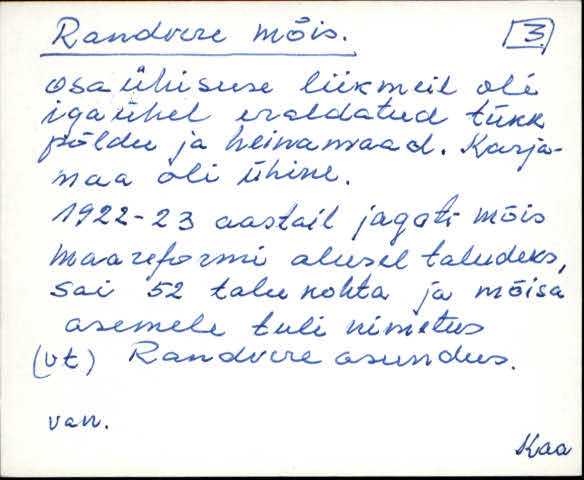 Randvere mõis. 3.
osaühisuse liikmeil oli
igaühel eraldatud tükk
põldu ja heinamaad. Karja-
maa oli ühine.
1922-23 aastail jagati mõis
maareformi alusel taludeks,
sai 52 talu kohta ja mõisa
asemele tuli nimetus
(vt) Randvere asundus.
van.
Kaa